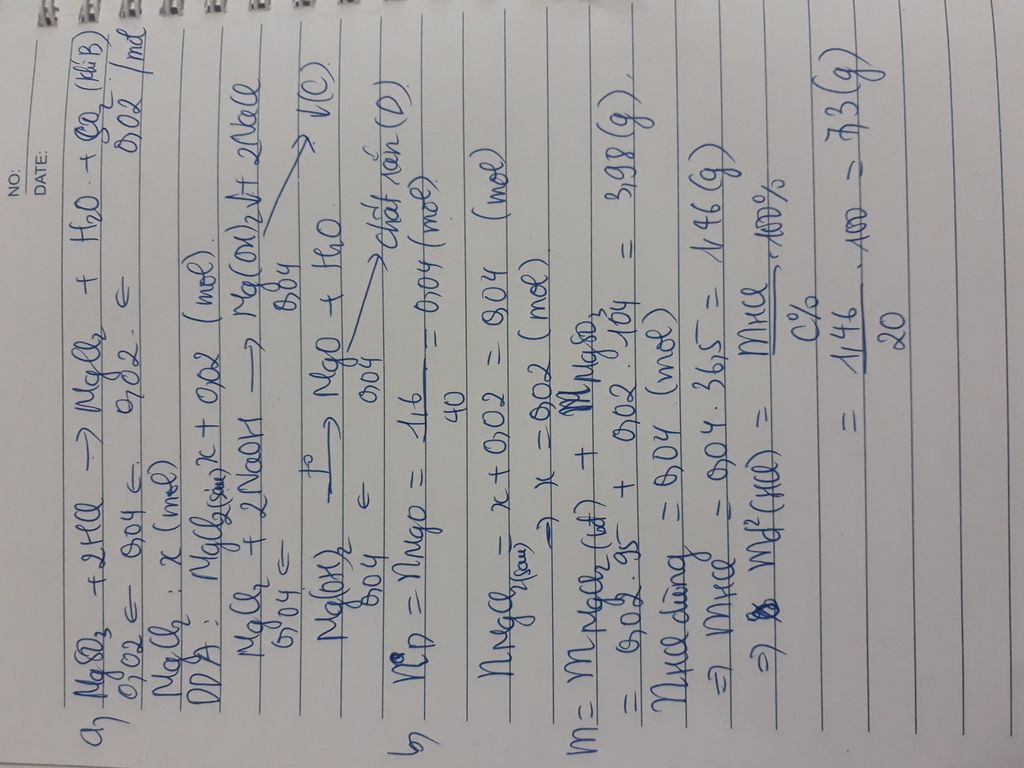 NO:
DATE:
a) MgCO3 + 2HCl → MgCl2 + H2O + CO2 (khí B)
0,02 ← 0,04 ← 0,02 ← 0,02 / mol
MgCl2 : x (mol)
DD A : MgCl2 (sau) x + 0,02 (mol)
MgCl2 + 2NaOH → Mg(OH)2↓ + 2NaCl
0,04 ← 0,04
Mg(OH)2 –t°→ MgO + H2O ↓(C)
0,04 ← 0,04 chất rắn (D)
b) nD = nMgO = 1,6 / 40 = 0,04 (mol)
nMgCl2 (sau) = x + 0,02 = 0,04 (mol)
⇒ x = 0,02 (mol)
m = mMgCl2 (bđ) + mMgCO3
= 0,02 . 95 + 0,02 . 104 = 3,98 (g)
nHCl dùng = 0,04 (mol)
⇒ mHCl = 0,04 . 36,5 = 1,46 (g)
⇒ md² (HCl) = mHCl / C% . 100%
= 1,46 / 20 . 100 = 7,3 (g)